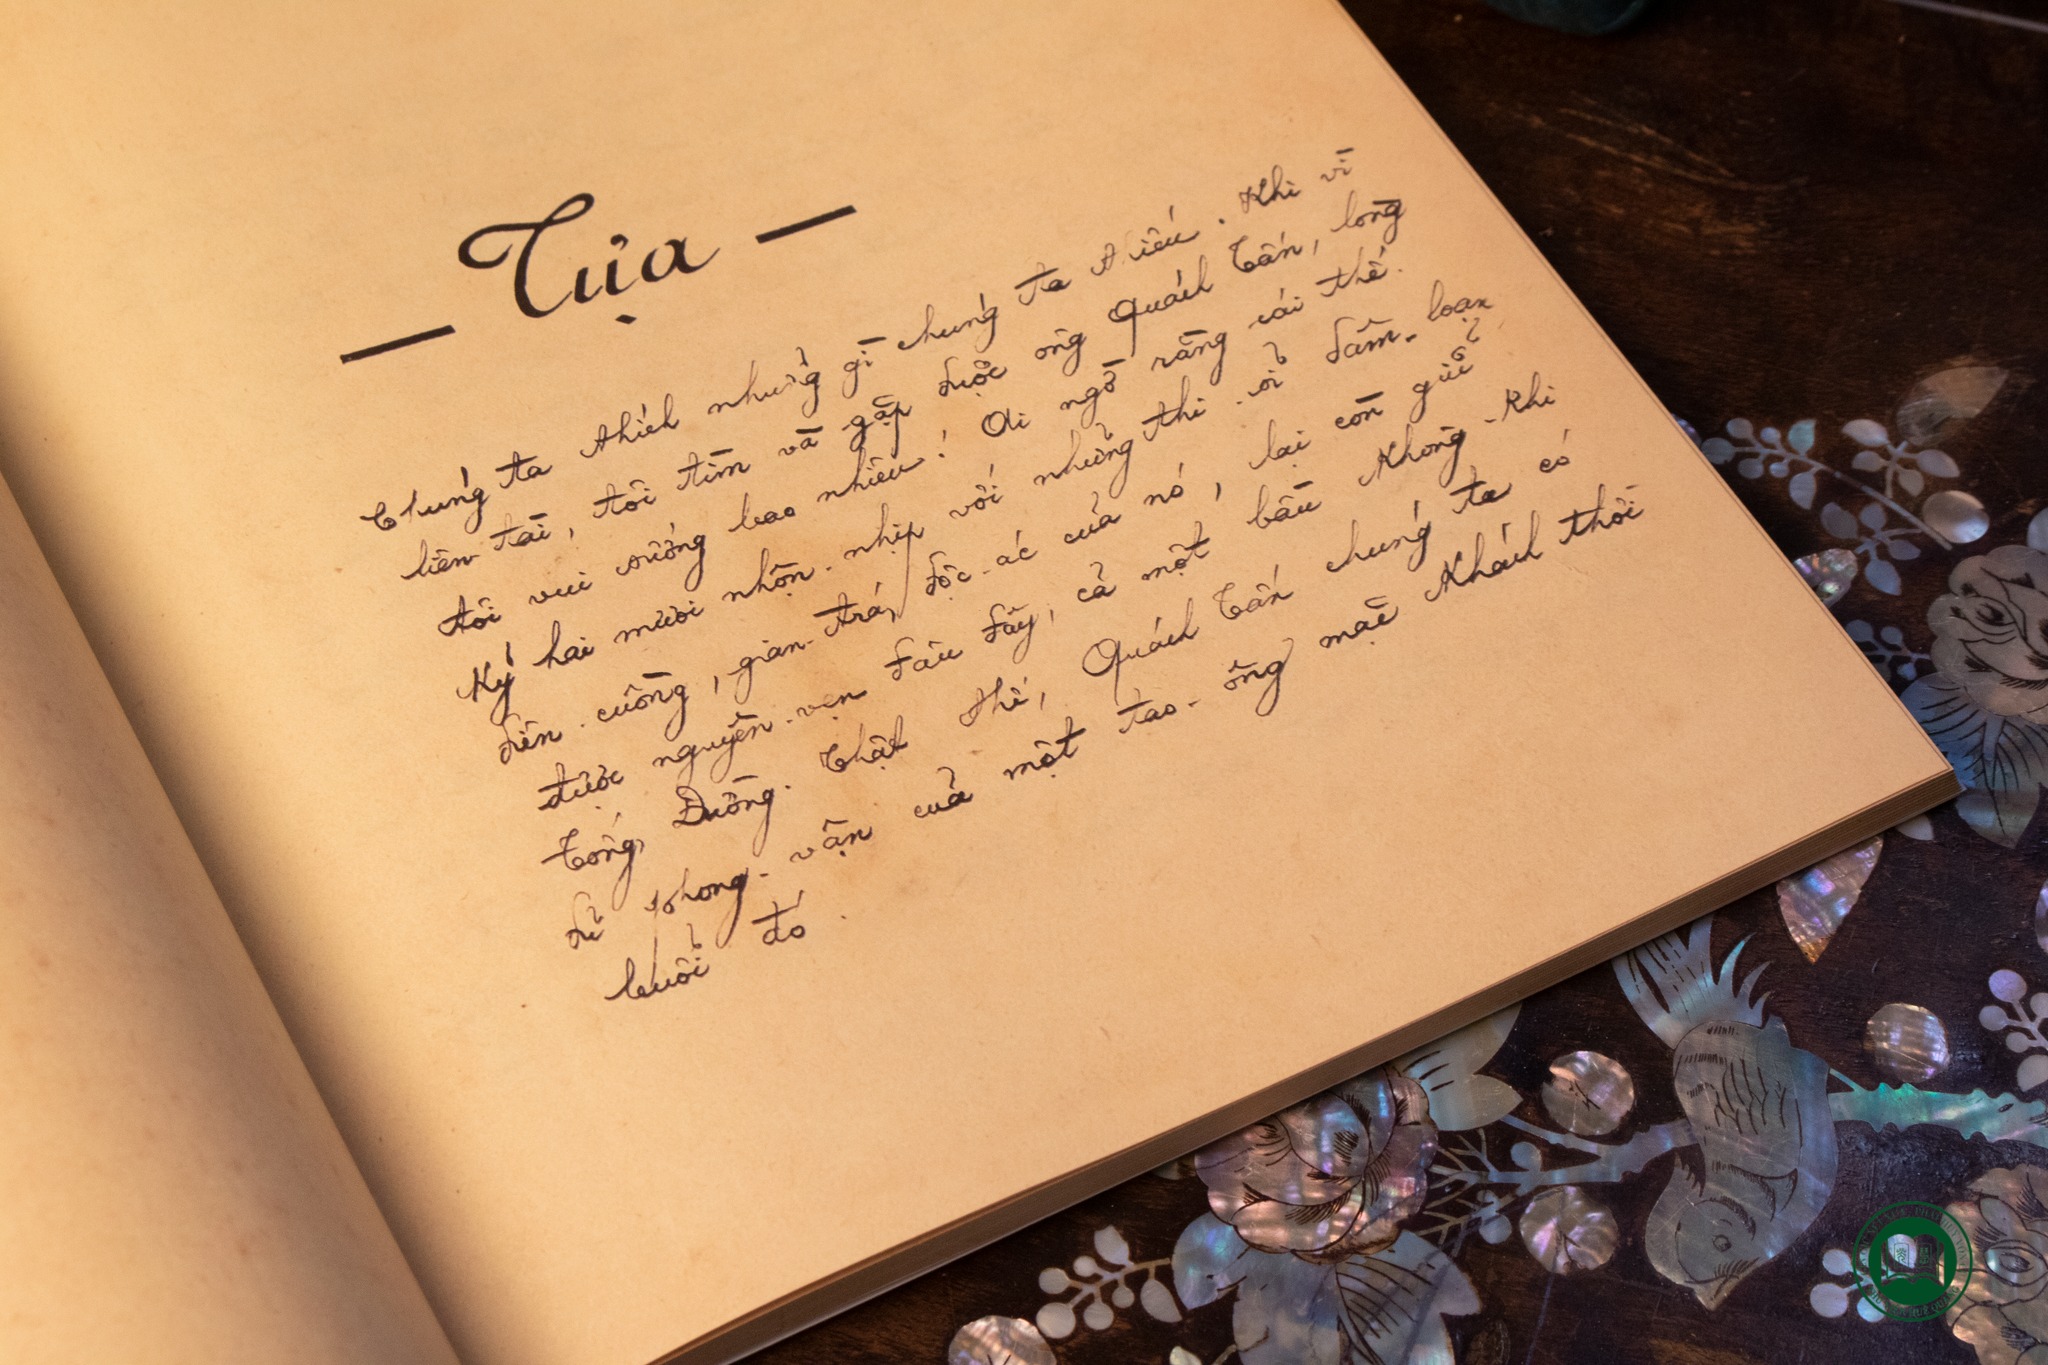 — Tựa —
Chúng ta thích những gì chúng ta thiếu. Khi vì
liên-tài, tôi tìm và gặp được ông Quách Tấn, lòng
tôi vui sướng bao nhiêu! Ai ngờ rằng cái thế-
kỷ hai mươi nhộn-nhịp với những thi-sĩ dâm-loạn,
điên-cuồng, gian-trá, độc-ác của nó, lại còn giữ
được nguyên-vẹn đâu đấy, cả một bầu không-khí
Tống, Đường. Thật thế, Quách Tấn chúng ta có
đủ phong-vận của một tao-ông mặc khách thời
buổi đó.